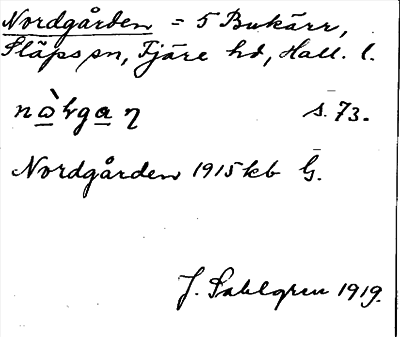 Nordgården = 5 Bukärr,
Släps sn, Fjäre hd, Hall. l.
s. 73.
Nordgården 1915 kb G.
J. Sahlgren 1919.